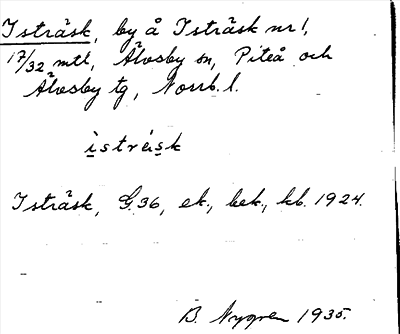 Isträsk, by å Isträsk nr 1,
17/32 mtl, Älvsby sn, Piteå och
Älvsby tg, Norrb. l.
isträsk
Isträsk, G. 36, ek., bek., kb. 1924.
B. Nygren 1935.